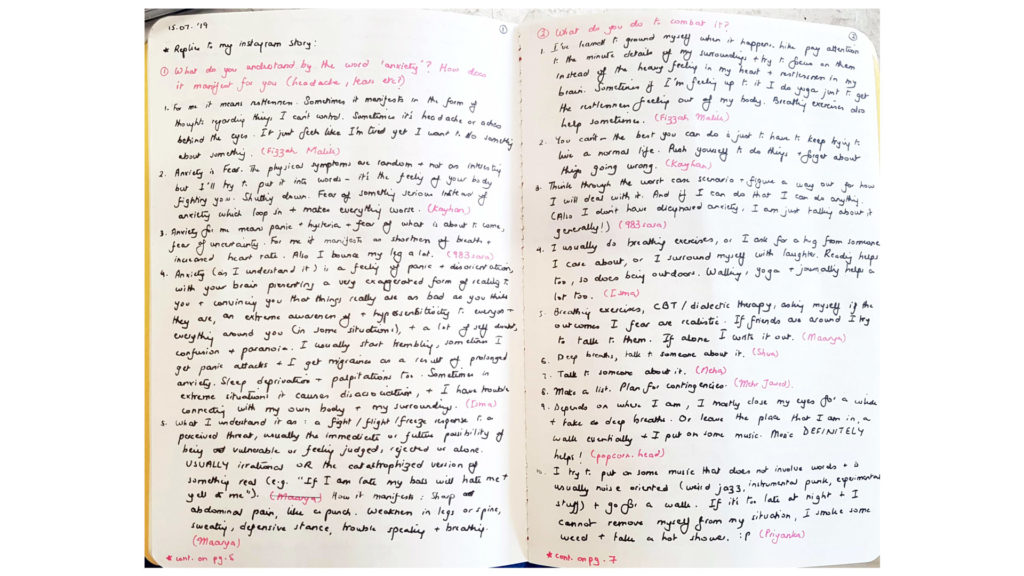 15.07.'19
①
* Replies to my instagram story:
① What do you understand by the word 'anxiety'? How does
it manifest for you (headache, tears etc?)
1. For me it means restlessness. Sometimes it manifests in the form of
thoughts regarding things I can't control. Sometimes it's headache or aches
behind the eyes. It just feels like I'm tired yet I want to do something
about something. (Fizzah Malik)
2. Anxiety is Fear. The physical symptoms are random + not as interesting
but I'll try to put it into words - it's the feeling of your body
fighting you. Shutting down. Fear of something serious instead of
anxiety which loops in + makes everything worse. (Kayhan)
3. Anxiety for me means panic + hysteria + fear of what is about to come,
fear of uncertainty. For me it manifests as shortness of breath +
increased heart rate. Also I bounce my leg a lot. (983sara)
4. Anxiety (as I understand it) is a feeling of panic + disorientation,
with your brain presenting a very exagerated form of reality to
you + convincing you that things really are as bad as you think
they are, an extreme awareness of + hypersensitivity to everyone +
everything around you (in some situations), + a lot of self doubt,
confusion + paranoia. I usually start trembling, sometimes I
get panic attacks + I get migraines as a result of prolonged
anxiety. Sleep deprivation + palpitations too. Sometimes in
extreme situations it causes disassociation, + I have trouble
connecting with my own body + my surroundings. (Isma)
5. What I understand it as: a fight/flight/freeze response to a
perceived threat, usually the immediate or future possibility of
being vulnerable or feeling judged, rejected or alone.
USUALLY irrational OR the catastrophized version of
something real (e.g. "If I am late my boss will hate me +
yell at me"). (Maarya) How it manifests: Sharp
abdominal pain, like a punch. Weakness in legs or spine,
sweating, defensive stance, trouble speaking + breathing.
(Maarya)
* cont. on pg. 5
②
② What do you do to combat it?
1. I've learned to ground myself when it happens. Like pay attention
to the minute details of my surroundings + try to focus on them
instead of the heavy feeling in my heart + restlessness in my
brain. Sometimes if I'm feeling up to it I do yoga just to get
the restlessness feeling out of my body. Breathing exercises also
help sometimes. (Fizzah Malik)
2. You can't - the best you can do is just to have to keep trying to
live a normal life. Push yourself to do things + forget about
things going wrong. (Kayhan)
3. Think through the worst case scenario + figure a way out for how
I will deal with it. And if I can do that I can do anything.
(Also I don't have diagnosed anxiety. I am just talking about it
generally!) (983sara)
4. I usually do breathing exercises, or I ask for a hug from someone
I care about, or I surround myself with laughter. Reading helps
too, so does being outdoors. Walking, yoga + journaling helps a
lot too. (Isma)
5. Breathing exercises, CBT/dialectic therapy, asking myself if the
outcomes I fear are realistic. If friends are around I try
to talk to them. If alone I write it out. (Maarya)
6. Deep breaths, talk to someone about it. (Shua)
7. Talk to someone about it. (Neha)
8. Make a list. Plan for contingencies. (Mehr Javed).
9. Depends on where I am, I mostly close my eyes for a while
+ take deep breaths. Or leave the place that I am in, a
walk eventually + I put on some music. Music DEFINITELY
helps! (popcorn.head)
10. I try to put on some music that does not involve words + is
usually noise oriented (weird jazz, instrumental punk, experimental
stuff) + go for a walk. If it's too late at night + I
cannot remove myself from my situation, I smoke some
weed + take a hot shower. :p (Priyanka)
* cont. on pg. 7